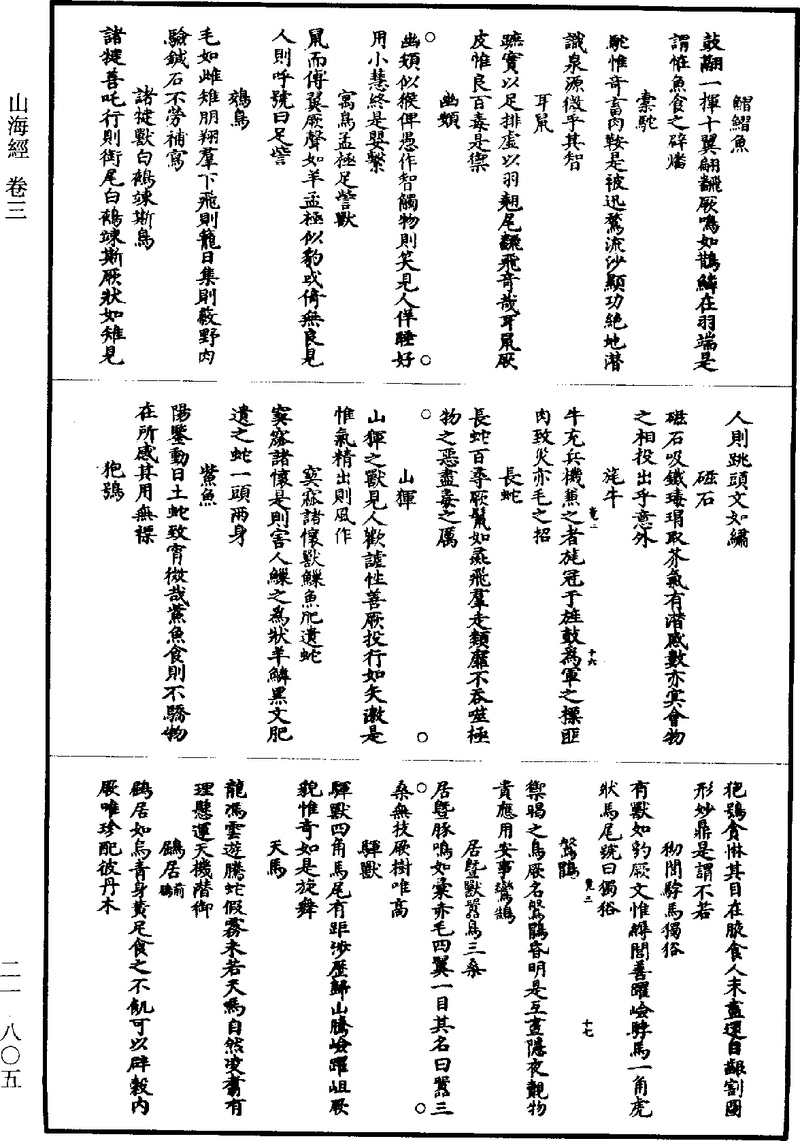 鰼鰼魚
鼓翮一揮十翼翩翻厥鳴如鵲鱗在羽端是
謂怪魚食之辟燔
橐駝
駝惟奇畜肉鞍是被迅騖流沙顯功絶地潛
識泉源微乎其智
耳鼠
蹠實以足排虛以羽翹尾翻飛奇哉耳鼠厥
皮惟良百毒是禦
幽頞
幽頞似猴俾愚作智觸物則笑見人佯睡好
用小慧終是嬰繫
寓鳥孟極足訾獸
鼠而傅翼厥聲如羊孟極似豹或倚無良見
人則呼號曰足訾
鵁鳥
毛如雌雉朋翔羣下飛則籠日集則蔽野肉
驗鍼石不勞補寫
諸犍獸白鵺竦斯鳥
諸犍善吒行則銜尾白鵺竦斯厥狀如雉見
人則跳頭文如繡
磁石
磁石吸鐵琥珀取芥氣有潛感數亦冥會物
之相投出乎意外
旄牛
牛充兵機兼之者旄冠于旌鼓爲軍之標匪
肉致災亦毛之招
長蛇
長蛇百尋厥鬣如彘飛羣走類靡不吞噬極
物之惡盡毒之厲
山𤟤
山𤟤之獸見人歡謔性善厥投行如矢激是
惟氣精出則風作
窫窳諸懷獸鱳魚肥遺蛇
窫窳諸懷是則害人鱳之爲狀羊鱗黑文肥
遺之蛇一頭兩身
鮆魚
陽鑒動日土蛇致宵微哉鮆魚食則不驕物
在所感其用無標
狍鴞
狍鴞貪惏其目在腋食人未盡還自齦割圖
形妙鼎是謂不若
狪閭䮝馬獨𤞞
有獸如豹厥文惟縟閭善躍嶮䮝馬一角虎
狀馬尾號曰獨𤞞
鷔鶥
禦暍之鳥厥名鷔鶥昏明是互晝隱夜覿物
貴應用安事鸞鵠
居暨獸囂鳥三桑
居暨豚鳴如彙赤毛四翼一目其名曰囂三
桑無枝厥樹唯高
䮝獸
䮝獸四角馬尾有距涉歷歸山騰嶮躍岨厥
貌惟奇如是旋舞
天馬
龍馮雲遊騰蛇假霧未若天馬自然凌翥有
理懸運天機潛御
鶌居
鶌居如烏青身黃足食之不飢可以辟穀内
厥唯珍配彼丹木
山海經 卷三
二一 八〇五